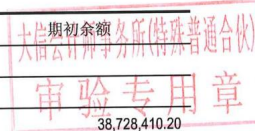 期初余额
大信会计师事务所(特殊普通合伙)
审验专用章
38,728,410.20